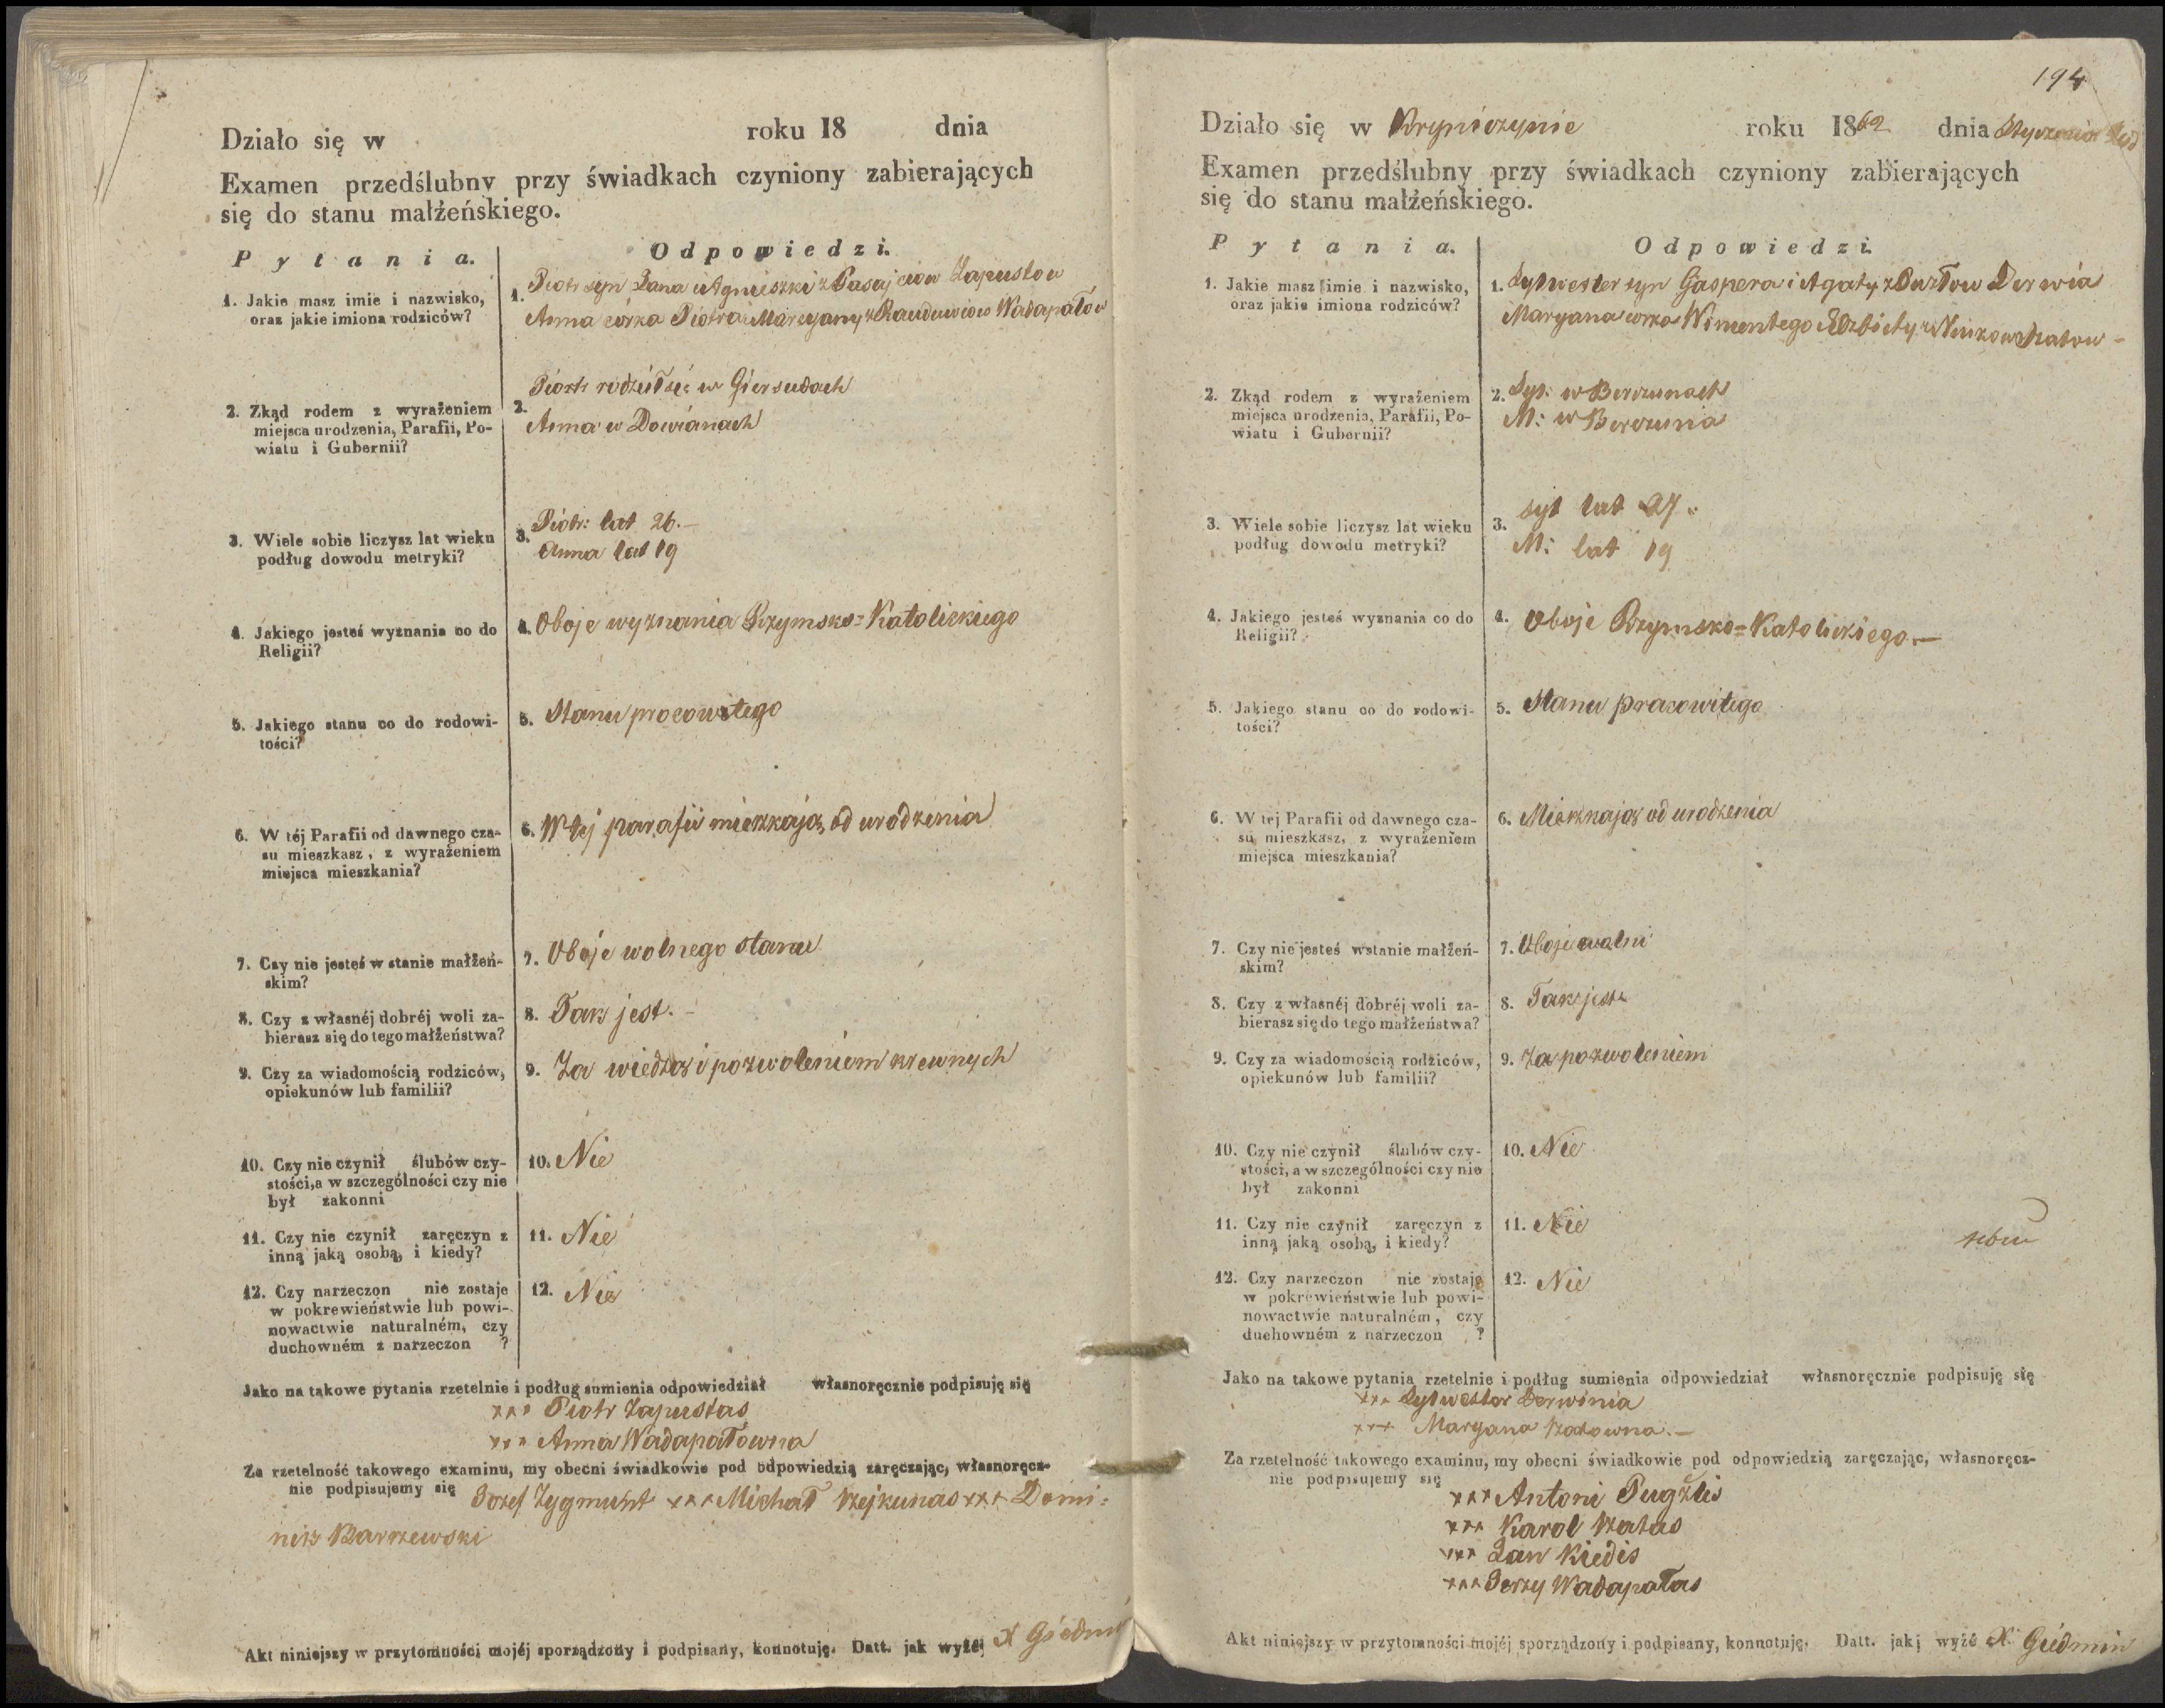 Działo się w roku 18 dnia
Examen przedślubny przy świadkach czyniony zabierających
się do stanu małżeńskiego.
Pytania.
Odpowiedzi.
1. Jakie masz imie i nazwisko,
oraz jakie imiona rodziców?
1. Piotr syn Jana i Agnieszki z Zapustow
Anna córka Piotra i Maryany z Wadapałów
2. Zkąd rodem z wyrażeniem
miejsca urodzenia, Parafii, Po-
wiatu i Gubernii?
2. Piotr rodził się w Giersudach
Anna w Dowianach
3. Wiele sobie liczysz lat wieku
podług dowodu metryki?
3. Piotr: lat 26.—
Anna lat 19
4. Jakiego jesteś wyznania co do
Religii?
4. Oboje wyznania Rzymsko=Katolickiego
5. Jakiego stanu co do rodowi-
tości?
5. Stanu pracowitego
6. W téj Parafii od dawnego cza-
su mieszkasz, z wyrażeniem
miejsca mieszkania?
6. W tej parafii mieszkają od urodzenia
7. Czy nie jesteś w stanie małżeń-
skim?
7. Oboje wolnego stanu
8. Czy z własnéj dobréj woli za-
bierasz się do tego małżeństwa?
8. Tak jest.—
9. Czy za wiadomością rodziców,
opiekunów lub familii?
9. Za wiedzą i pozwoleniem krewnych
10. Czy nie czynił ślubów czy-
stości, a w szczególności czy nie
był zakonni
10. Nie
11. Czy nie czynił zaręczyn z
inną jaką osobą, i kiedy?
11. Nie
12. Czy narzeczon nie zostaje
w pokrewieństwie lub powi-
nowactwie naturalném, czy
duchowném z narzeczon ?
12. Nie
Jako na takowe pytania rzetelnie i podług sumienia odpowiedział własnoręcznie podpisuję się
xxx Piotr Zapustas
xxx Anna Wadapałówna
Za rzetelność takowego examinu, my obecni świadkowie pod odpowiedzią zaręczając, własnoręcz-
nie podpisujemy się Jozef Zygmunt xxx Michał xxx Domi=
nik
Akt niniejszy w przytomności mojéj sporządzony i podpisany, konnotuję. Datt. jak wyżéj X Giedmin
194
Działo się w roku 1862 dnia Stycznia
Examen przedślubny przy świadkach czyniony zabierających
się do stanu małżeńskiego.
Pytania.
Odpowiedzi.
1. Jakie masz imie i nazwisko,
oraz jakie imiona rodziców?
1. Sylwester syn Gaspera i Agaty z
Maryana corka
2. Zkąd rodem z wyrażeniem
miejsca urodzenia, Parafii, Po-
wiatu i Gubernii?
2. Syl: w Berzunach
M: w Berzunia
3. Wiele sobie liczysz lat wieku
podług dowodu metryki?
3. Syl lat 27.
M: lat 19
4. Jakiego jesteś wyznania co do
Religii?
4. Oboje Rzymsko=Katolickiego.—
5. Jakiego stanu co do rodowi-
tości?
5. Stanu pracowitego
6. W téj Parafii od dawnego cza-
su mieszkasz, z wyrażeniem
miejsca mieszkania?
6. Mieszkają od urodzenia
7. Czy nie jesteś wstanie małżeń-
skim?
7. Oboje wolni
8. Czy z własnéj dobréj woli za-
bierasz się do tego małżeństwa?
8. Tak jest
9. Czy za wiadomością rodziców,
opiekunów lub familii?
9. Za pozwoleniem
10. Czy nie czynił ślubów czy-
stości, a w szczególności czy nie
był zakonni
10. Nie
11. Czy nie czynił zaręczyn z
inną jaką osobą, i kiedy?
11. Nie
12. Czy narzeczon nie zostaje
w pokrewieństwie lub powi-
nowactwie naturalném, czy
duchowném z narzeczon ?
12. Nie
Jako na takowe pytania rzetelnie i podług sumienia odpowiedział własnoręcznie podpisuję się
xxx Sylwester Derwinia
xxx Maryana
Za rzetelność takowego examinu, my obecni świadkowie pod odpowiedzią zaręczając, własnoręcz-
nie podpisujemy się
xxx Antoni Pugżlis
xxx Karol
xxx Jan Kiedis
xxx Jerzy Wadapałas
Akt niniejszy w przytomności mojéj sporządzony i podpisany, konnotuję. Datt. jakj wyżé X. Giedmin